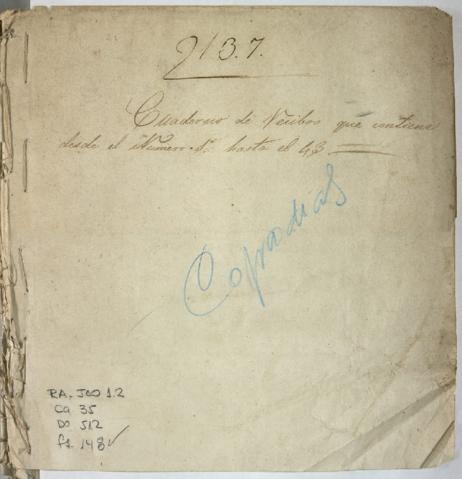 2137.
Cuaderno de Recibos que contiene
desde el Número 1º hasta el 43
Cofradias
RA. JCO 1.2
Ca 35
DO 512
fs. 148